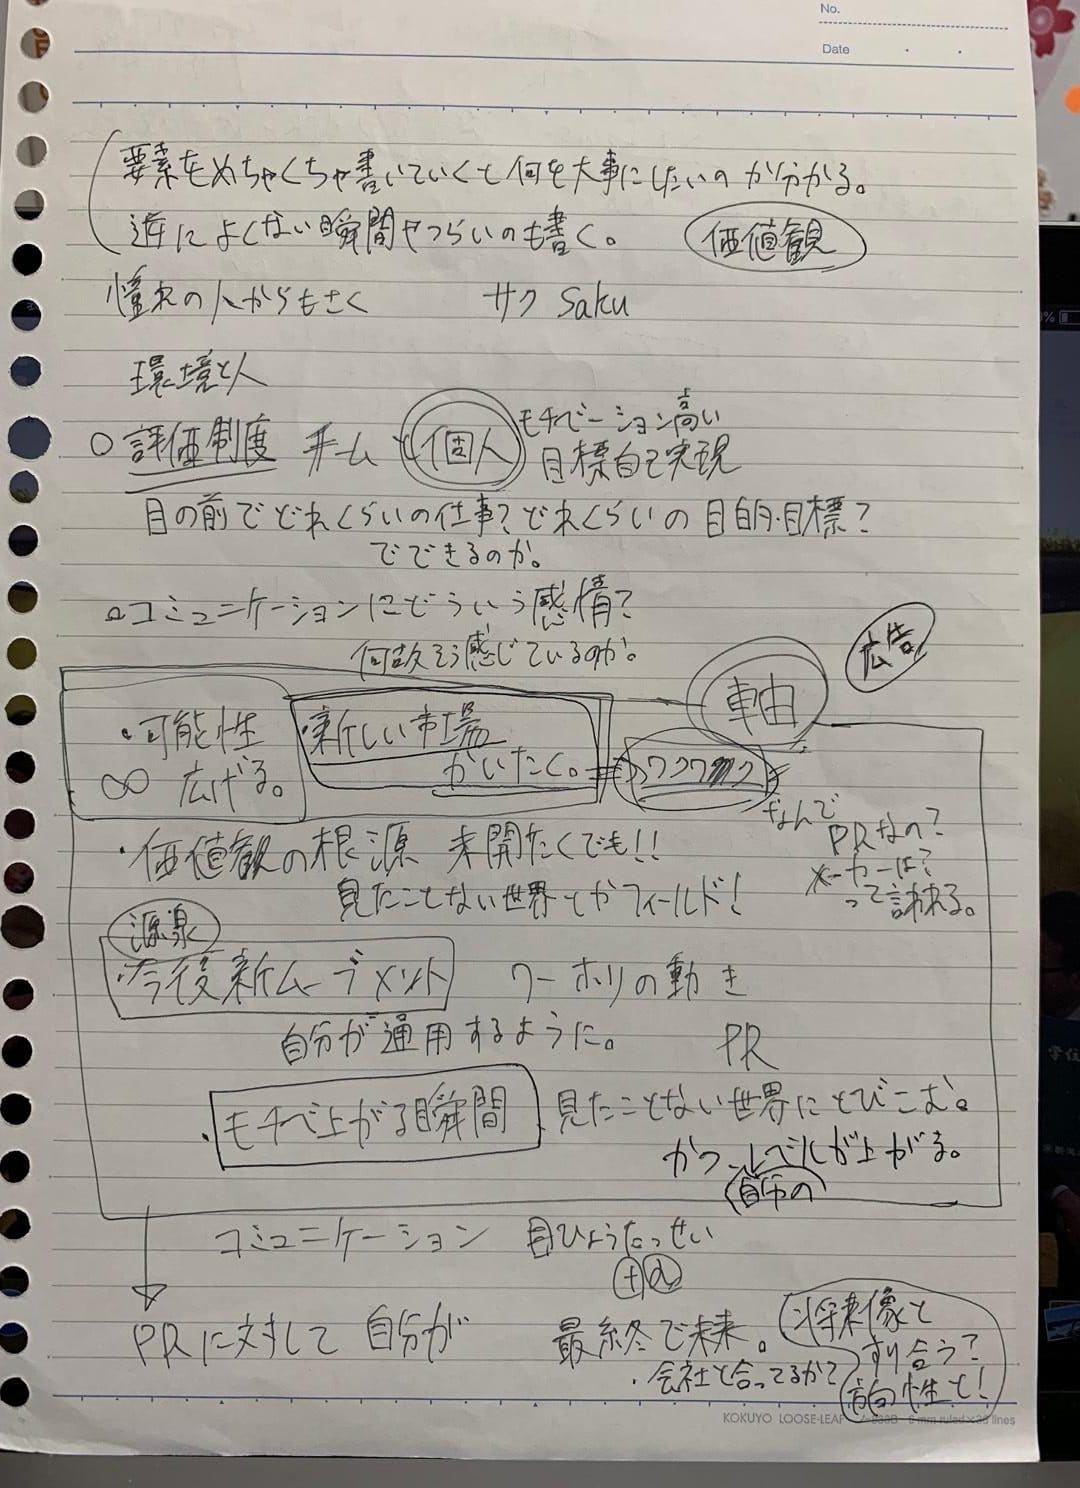 No.
Date
要素をめちゃくちゃ書いていくと何を大事にしたいのか分かる。
逆によくない瞬間やつらいのも書く。 価値観
憧れの人からもさく サク Saku
環境と人
○評価制度 チームと個人 モチベーション高い
目標自己実現
目の前でどれくらいの仕事?どれくらいの目的・目標?
でできるのか。
コミュニケーションにどういう感情?
何故そう感じているのか。
広告
軸
・可能性
∞ 広げる。
・新しい市場
かいたく。
ワクワク
なんで
PRなの?
メーカーは?
って言われる。
・価値観の根源 未開たくでも!!
見たことない世界とかフィールド!
源泉
・今後新ムーブメント ワーホリの動き
自分が通用するように。 PR
・モチベ上がる瞬間 見たことない世界にとびこむ。
かつ レベルが上がる。
自分の
コミュニケーション 目ひょうたっせい
+α
PRに対して 自分が 最終で未来。
将来像と
すり合う?
方向性と!
・会社と合ってるか?
KOKUYO LOOSE-LEAF 6 mm ruled×36 lines